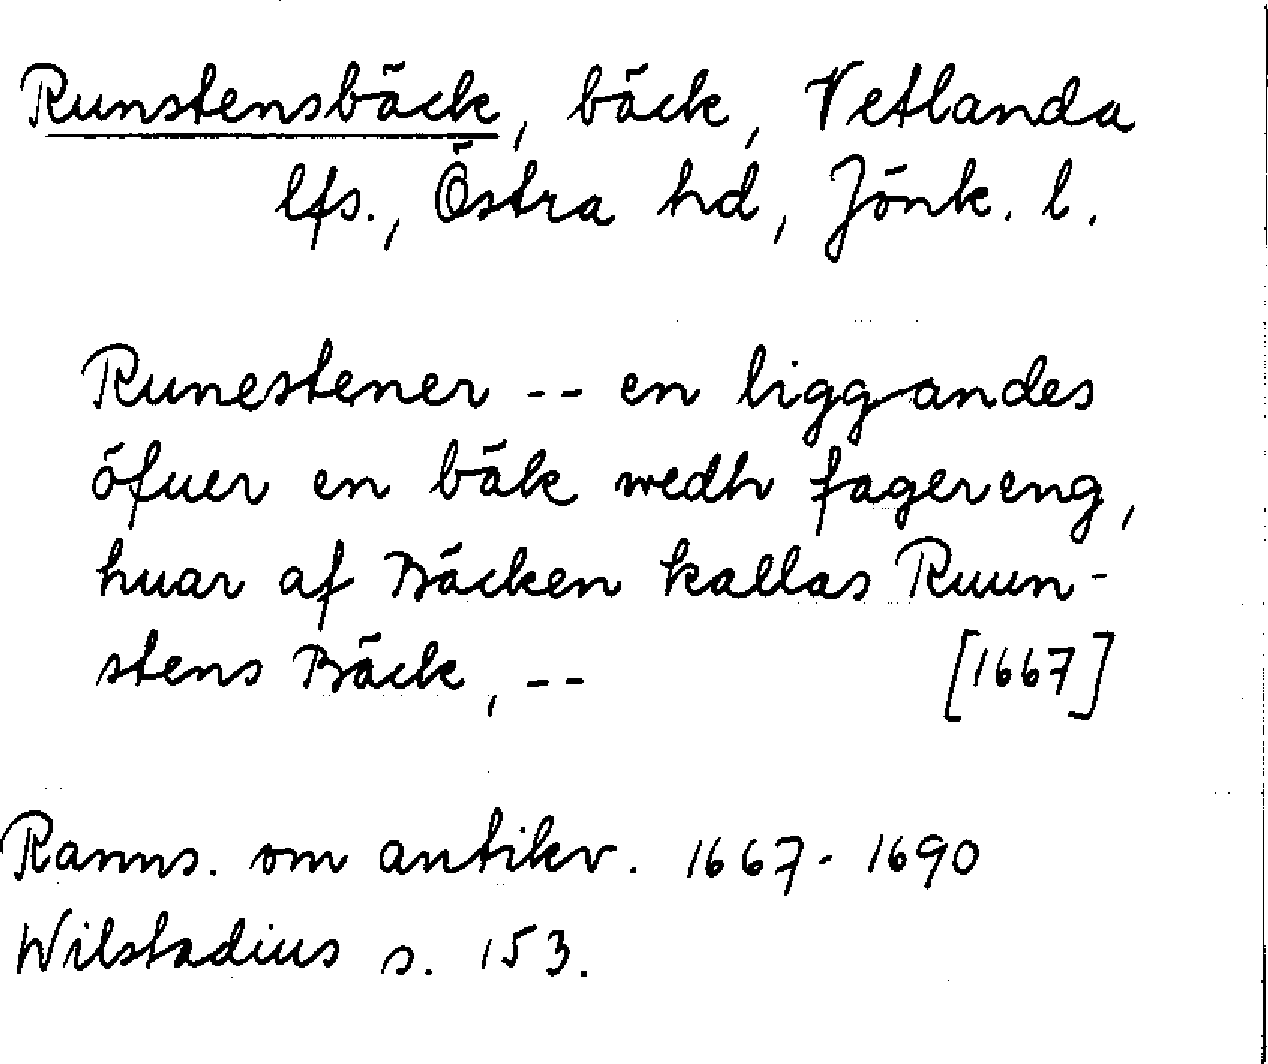 Runstensbäck, bäck, Vetlanda
lfs., Östra hd, Jönk. l.
Runestener -- en liggandes
öfuer en bäk wedh fagereng,
huar af Bäcken kallas Ruun-
stens Bäck, -- [1667]
Ranns. om antikv. 1667-1690
Wilstadius s. 153.